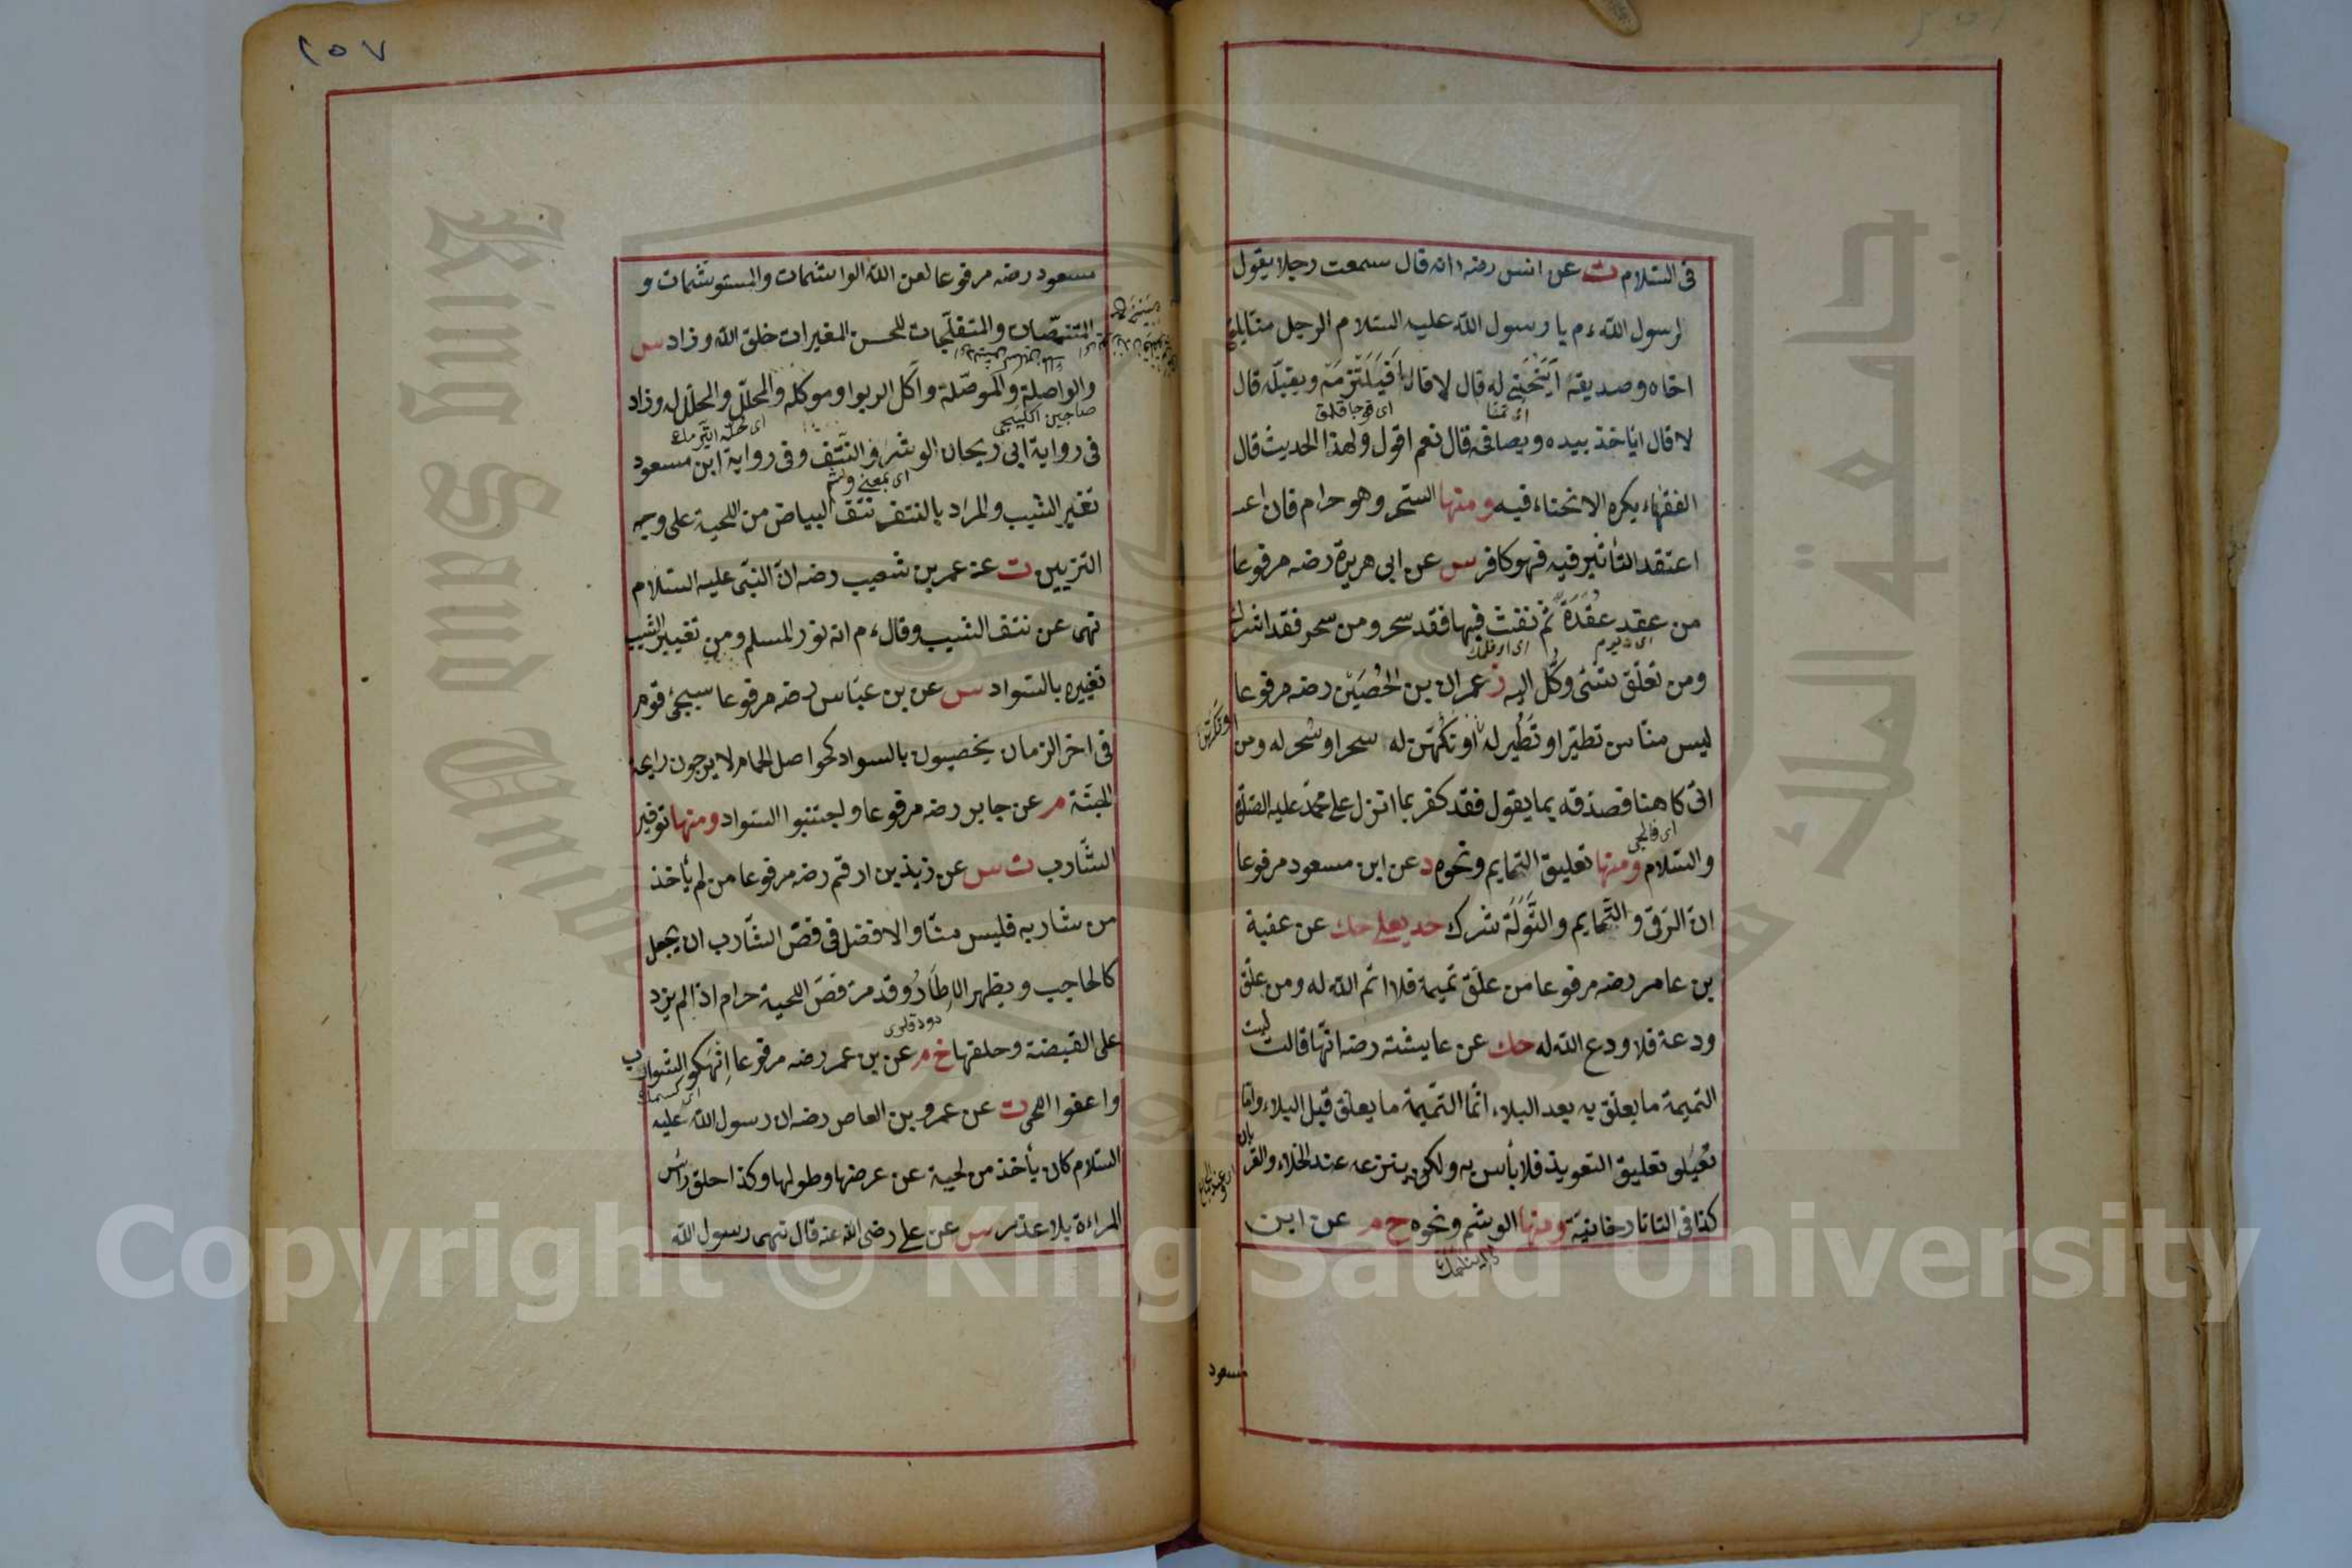 فى السّلام ت عن انس رضه انه قال سمعت رجلا يقول
لرسول اللّه ءم يا رسول اللّه عليه السّلام الرجل منّا يلقى
اخاه وصديقه اَيَنْحَنِى له قال لا قال اَفَيَلْتَزِمَهُ ويقبّله قال
لا قال اياخذ بيده ويصافحه قال نعم اقول ولهذا الحديث قال
الفقهاء يكره الانحناء فيه ومنها السّحر وهو حرام فان اعـ
اعتقد التأثير فيه فهو كافر س عن ابى هريرة رضه مرفوعا
من عقد عُقْدَةً ثم نفث فيها فقد سحر ومن سحر فقد اشرك
ومن تعلّق بشئ وُكّل اليه ز عمران بن الحُصَيْن رضه مرفوعا
ليس منّا من تطيّر او تُطُيِّر له او تُكُهّن له سحر او سُحر له ومن
اتى كاهنا فصدقه بما يقول فقد كفر بما انزل على محمّد عليه الصّلوة
والسّلام ومنها تعليق التمايم ونحوه د عن ابن مسعود مرفوعا
انّ الرّقى والتَّمايم والتِّوَلَةَ شرك حد يعلى حك عن عقبة
بن عامر رضه مرفوعا من علّق تميمة فلا اتم اللّه له ومن علّق
ودعة فلا ودع اللّه له حك عن عايشة رضه انّها قالت ليست
التميمة ما يعلّق به بعد البلاء انّما التّميمة ما يعلّق قبل البلاء وامّا
تعليق التعويذ فلا بأس به ولكن ينزعه عند الخلاء والقربان
كذا فى التاتارخانيّة ومنها الوشم ونحوه خ م عن ابن
مسعود
٢٥٧
مسعود رضه مرفوعا لعن اللّه الواشمات والمستوشمات و
المتنمّصات والمتفلّجات للحسن المغيرات خلق اللّه وزاد س
والواصلة والموصّلة وآكل الربوا وموكله والمحلّل والمحلّل له وزاد
فى رواية ابى ريحان الوشر والنّتف وفى رواية ابن مسعود
تغيّر الشيب والمراد بالنتف نتف البياض من اللحية على وجه
التزيين ت عن عمر بن شعيب رضه انّ النبّى عليه السّلام
نهى عن نتف الشيب وقال ءم انه نور المسلم ومن تغيير الشيب
تغييره بالسّواد س عن بن عبّاس رضه مرفوعا سيجئ قوم
فى اخر الزمان يخضبون بالسواد كحواصل الحمام لا يرجون رايحة
الجنّة م عن جابر رضه مرفوعا واجتنبوا السّواد ومنها توفير
الشّارب ت س عن زيد بن ارقم رضه مرفوعا من لم يأخذ
من شاربه فليس منّا والافضل فى قصّ الشّارب ان يجعل
كالحاجب ويظهر الإطَارُ وقد مرّ قصّ اللحية حرام اذا لم يزد
على القبضة وحلقها خ م عن بن عمر رضه مرفوعا اِنْهَكُو الشّوارب
واعفوا اللحى ت عن عمرو بن العاص رضه ان رسول اللّه عليه
السّلام كان يأخذ من لحية عن عرضها وطولها وكذا حلق رأس
المراءة بلا عذر س عن على رضى اللّه عنه قال نهى رسول اللّه
King Saud University
جامعة الملك سعود
1957
Copyright © King Saud University